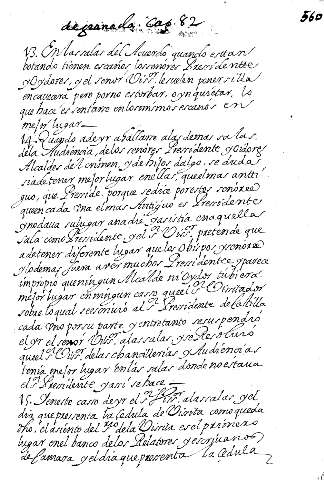 de granada. Cap. 82
560
V3. En las salas del Acuerdo quando estan
botando tienen escaños los señores Presidente
y Oydores, y el señor Vis.r le suelen poner silla
en cavecera pero por no estorbar, o ynquietar, lo
que hace es sentarse en los mismos escaños en
mejor lugar
V4. Quando a de yr a hallarse a las demas salas
de la Audiencia, de los señores Presidente y Oydores
Alcaldes del crimen, y de hijos dalgo, se duda
si a de tener mejor lugar en ellas, que el mas anti
guo, que Preside, porque se dice por estos señores
que en cada una el mas Antiguo es Presidente
y no dava su lugar a nadie, y asistia en aquella
sala como Presidente y el s.r Vis.r pretende que
a de tener diferente lugar que los Obispos, y señores
y podemas fuera a ver muchos Presidentes y parece
impropio que ningun Alcalde ni Oydor tubiera
mejor lugar en ningun caso que el s.r Visitador
sobre lo qual se escrivio al s.r Presidente de Castilla
cada uno por su parte, y entretanto se suspendio
el yr el señor Vis.r a las salas, y se Resolvio
que el s.r Vis.r de las chancillerias y Audiencias
tenia mejor lugar en las salas donde no estava
el s.r Presidente y asi se hace
V5. En este caso de yr el s.r Vis.r a las salas, y el
dia que presenta la Cedula de Visita como queda
dho, el asiento del s.rio de la Visita es el primero
lugar en el banco de los Relatores, y escrivanos
de Camara y el dia que presenta la cedula